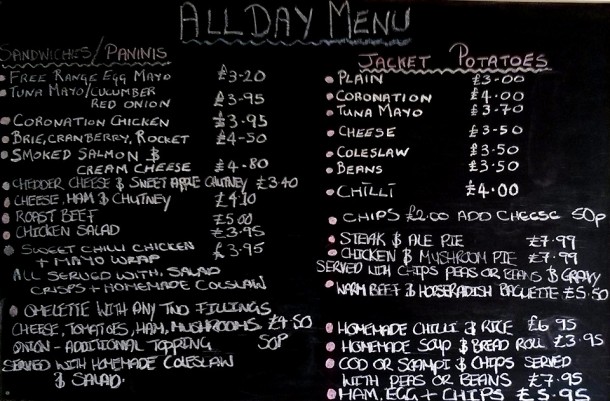 ALL DAY MENU
SANDWICHES/PANINIS
FREE RANGE EGG MAYO £3-20
TUNA MAYO/CUCUMBER
RED ONION £3-95
CORONATION CHICKEN £3.95
BRIE, CRANBERRY, ROCKET £4-50
SMOKED SALMON &
CREAM CHEESE £4.80
CHEDDER CHEESE & SWEET APPLE CHUTNEY £3.40
CHEESE, HAM & CHUTNEY £4.10
ROAST BEEF £5.00
CHICKEN SALAD £3.95
SWEET CHILLI CHICKEN £3.95
+ MAYO WRAP
ALL SERVED WITH SALAD
CRISPS + HOMEMADE COLESLAW
OMELETTE WITH ANY TWO FILLINGS
CHEESE, TOMATOES, HAM, MUSHROOMS £4.50
ONION - ADDITIONAL TOPPING 50P
SERVED WITH HOMEMADE COLESLAW
& SALAD.
JACKET POTATOES
PLAIN £3.00
CORONATION £4.00
TUNA MAYO £3-70
CHEESE £3.50
COLESLAW £3.50
BEANS £3.50
CHILLI £4.00
CHIPS £2.00 ADD CHEESE 50P
STEAK & ALE PIE £7.99
CHICKEN & MUSHROOM PIE £7.99
SERVED WITH CHIPS PEAS OR BEANS & GRAVY
WARM BEEF & HORSERADISH BAGUETTE £5.50
HOMEMADE CHILLI & RICE £6.95
HOMEMADE SOUP & BREAD ROLL £3.95
COD OR SCAMPI & CHIPS SERVED
WITH PEAS OR BEANS £7.95
HAM, EGG + CHIPS £5.95